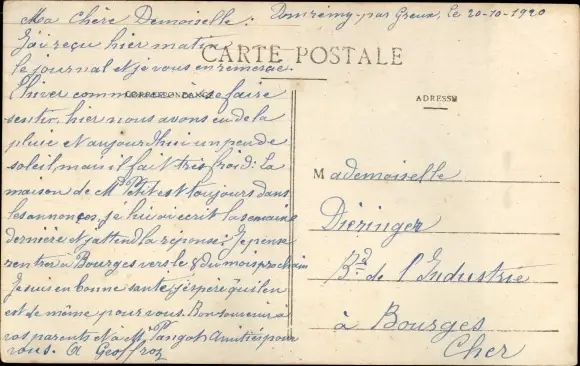 Ma Chère Demoiselle: Domrémy-par Greux, le 20-10-1920
J'ai reçu hier matin
CARTE POSTALE
le journal et je vous en remercie.
l'hiver commence à se faire
CORRESPONDANCE
ADRESSE
sentir. hier nous avons eu de la
pluie et aujourd'hui un peu de
soleil, mais il fait très froid: La
maison de Mr Petit est toujours dans
les annonces, je lui ai écrit la semaine
dernière et j'attend la réponse: Je pense
rentrer à Bourges vers le 8 du mois prochain
Je suis en bonne santé, j'espère qu'il en
est de même pour vous. Bon souvenir à
vos parents et à Mr Pangot. Amitiés pour
vous. A Geoffroy
Mademoiselle
Dieringer
Bd de l'Industrie
à Bourges
Cher